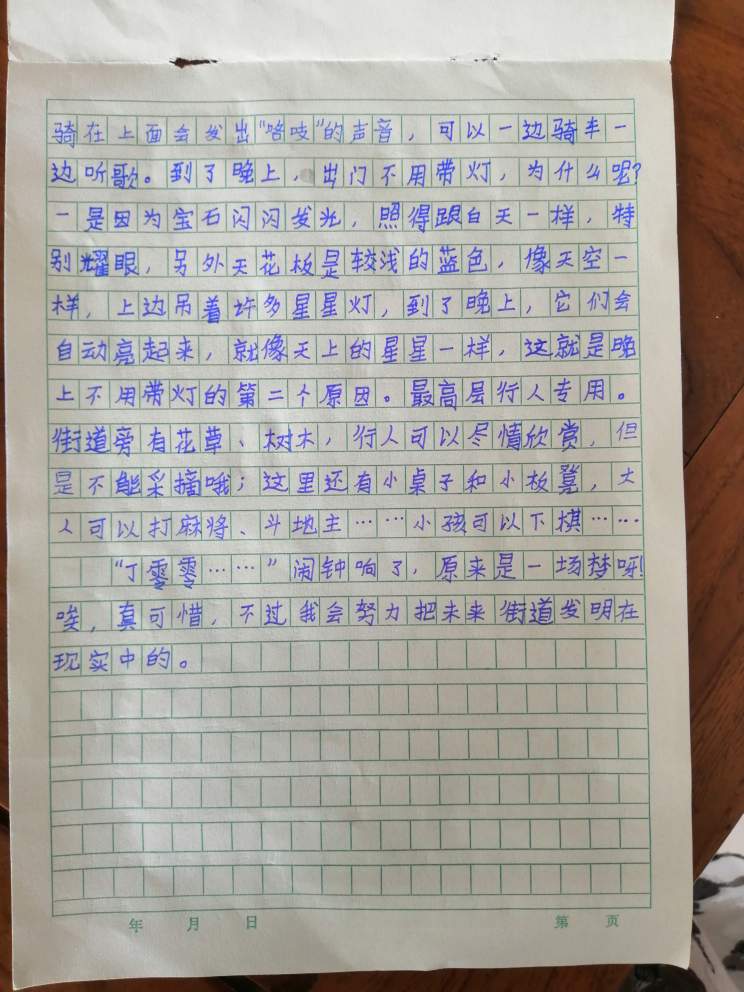 骑在上面会发出“咯吱”的声音，可以一边骑车一
边听歌。到了晚上，出门不用带灯，为什么呢？
一是因为宝石闪闪发光，照得跟白天一样，特
别耀眼，另外天花板是较浅的蓝色，像天空一
样，上边吊着许多星星灯，到了晚上，它们会
自动亮起来，就像天上的星星一样，这就是晚
上不用带灯的第二个原因。最高层行人专用。
街道旁有花草、树木，行人可以尽情欣赏，但
是不能采摘哦；这里还有小桌子和小板凳，大
人可以打麻将、斗地主……小孩可以下棋……
“丁零零……”闹钟响了，原来是一场梦呀！
唉，真可惜，不过我会努力把未来街道发明在
现实中的。
年 月 日 第 页